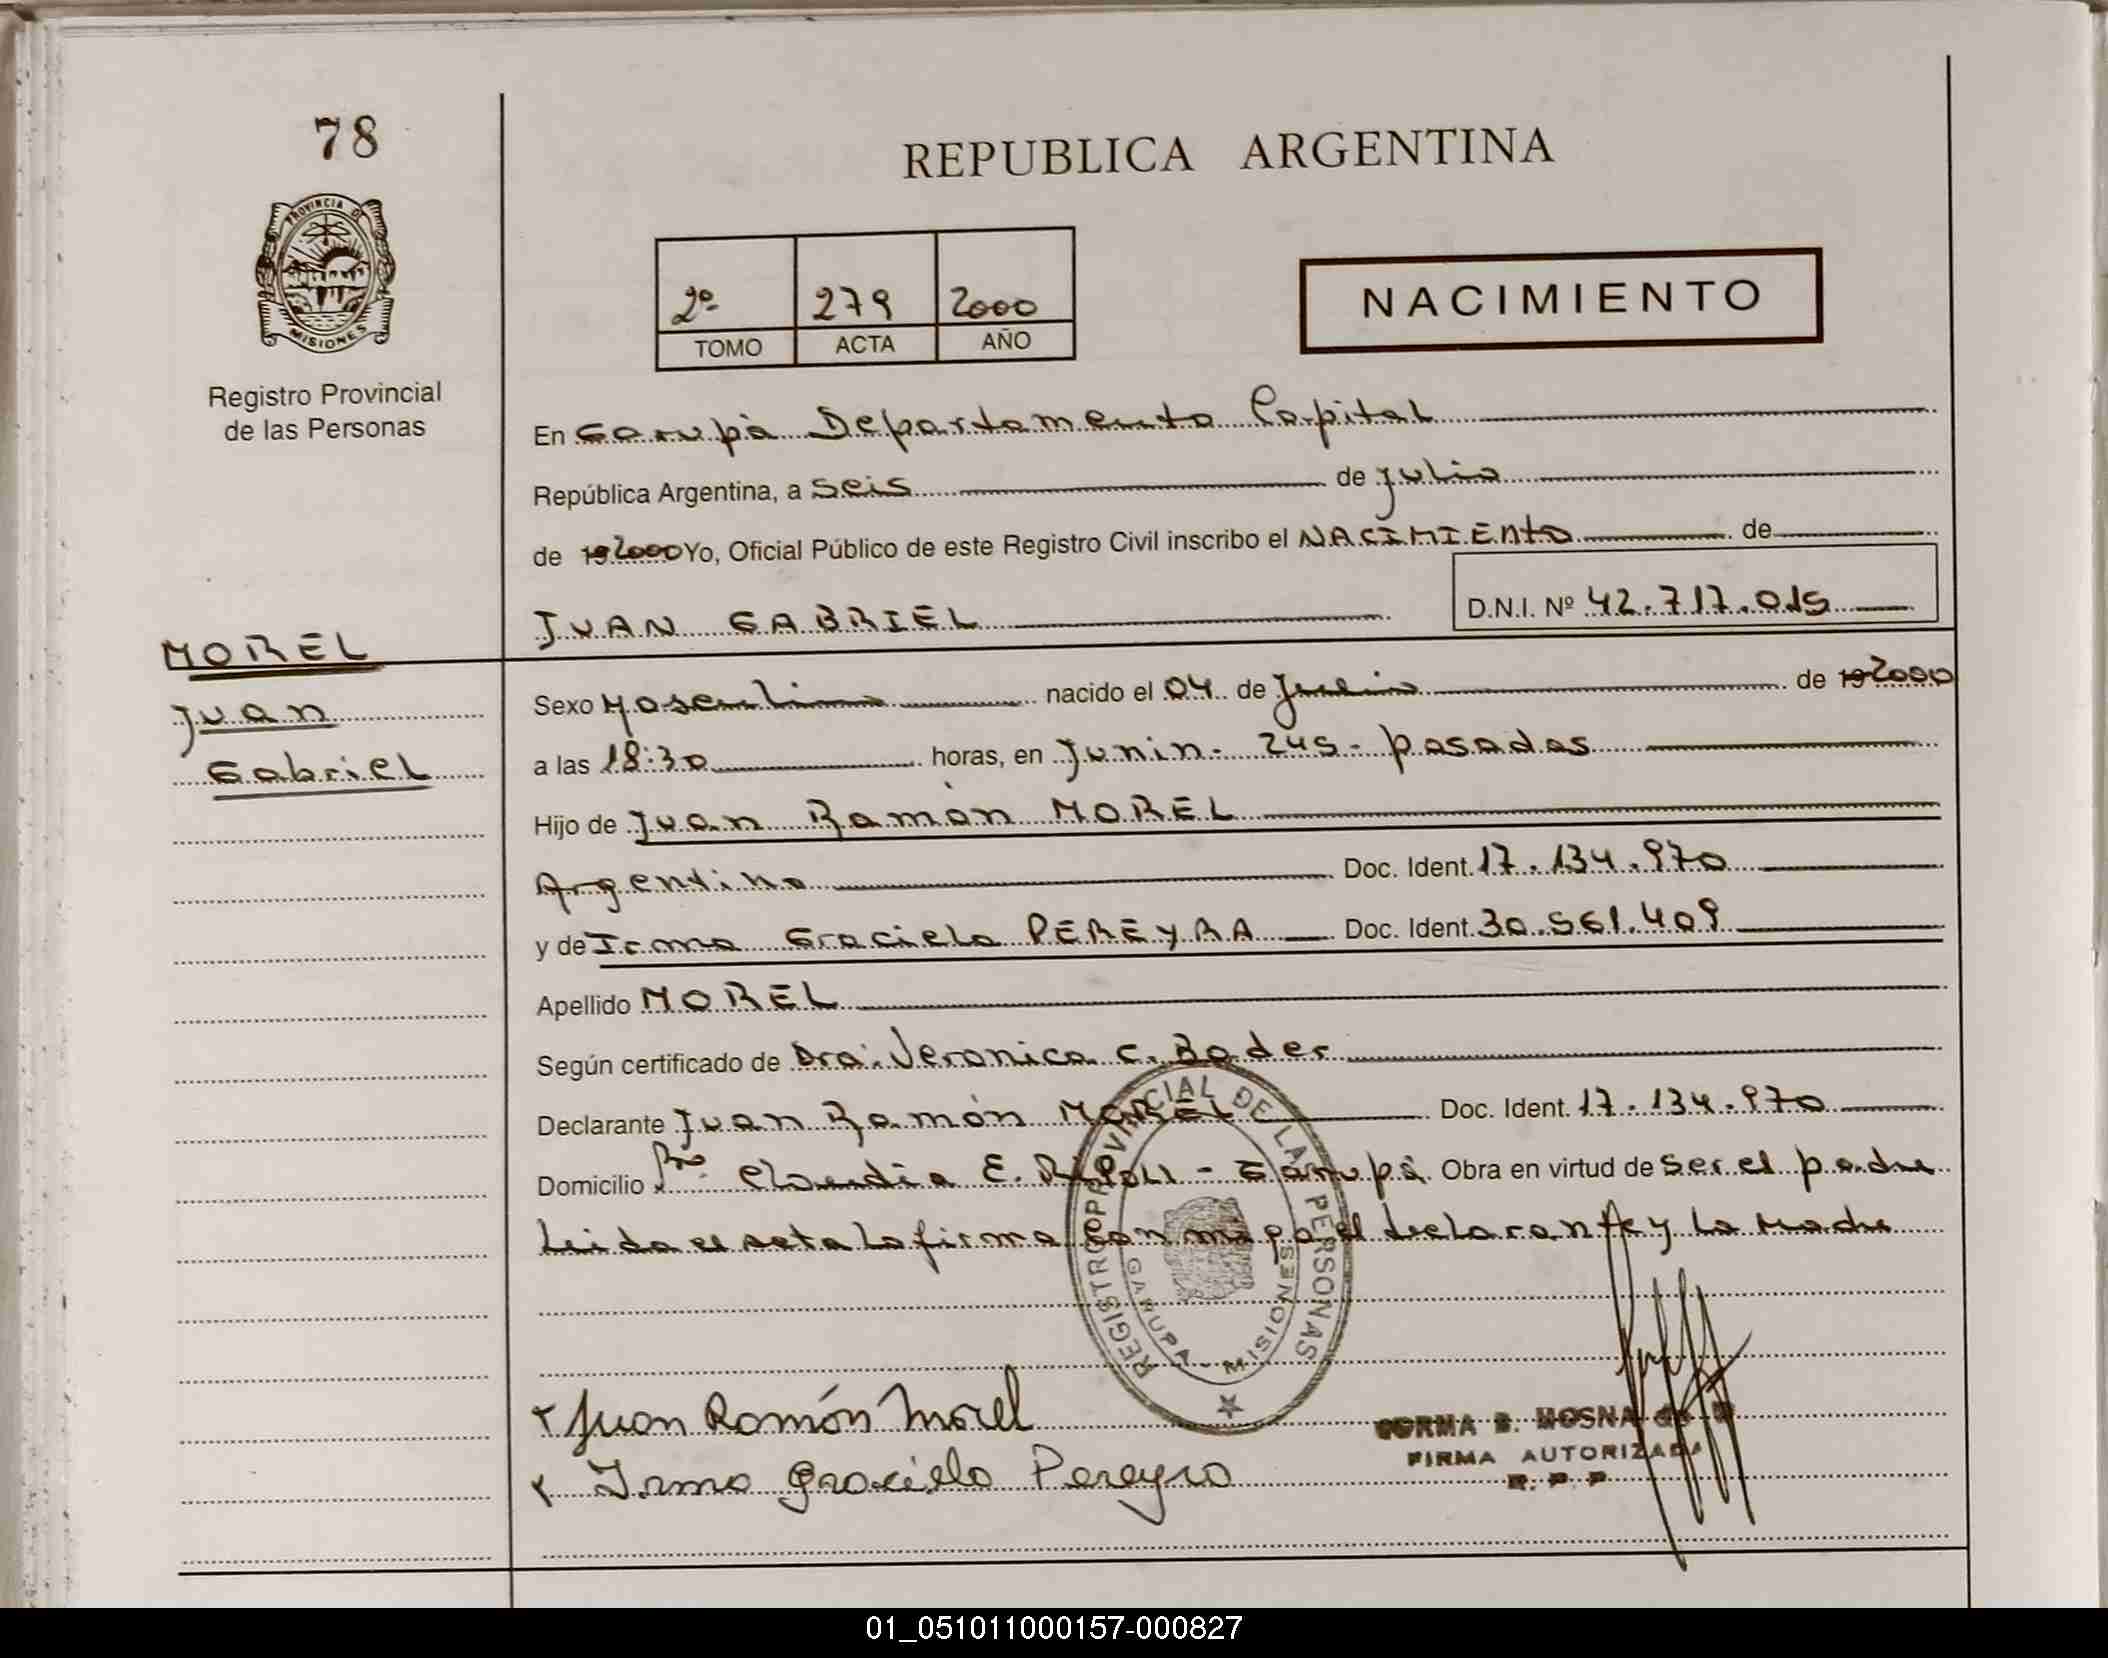 78
PROVINCIA DE
MISIONES
Registro Provincial
de las Personas
REPUBLICA ARGENTINA
2º 279 2000
TOMO ACTA AÑO
NACIMIENTO
En Garupà Departamento Capital
República Argentina, a seis de julio
de 19 2000 Yo, Oficial Público de este Registro Civil inscribo el NACIMIENto de
JUAN GABRIEL D.N.I. Nº 42.717.015
MOREL
Juan
Gabriel
Sexo Masculino nacido el 04 de Junio de 19 2000
a las 18:30 horas, en Junin - 245 - posadas
Hijo de Juan Ramón MOREL
Argentino Doc. Ident. 17.134.970
y de Irma Graciela PEREYRA Doc. Ident. 30.561.409
Apellido MOREL
Según certificado de Dra. Veronica C. Bader
Declarante Juan Ramón MOREL Doc. Ident. 17.134.970
Domicilio Bº Claudia E. Garupà Obra en virtud de ser el padre
Leida el acta la firma con migo el declarante y la Madre
REGISTRO PROVINCIAL DE LAS PERSONAS
GARUPA - MISIONES
Juan Ramón Morel
Irma Graciela Pereyra
B. MOSNA
FIRMA AUTORIZADA
R. P. P
01_051011000157-000827